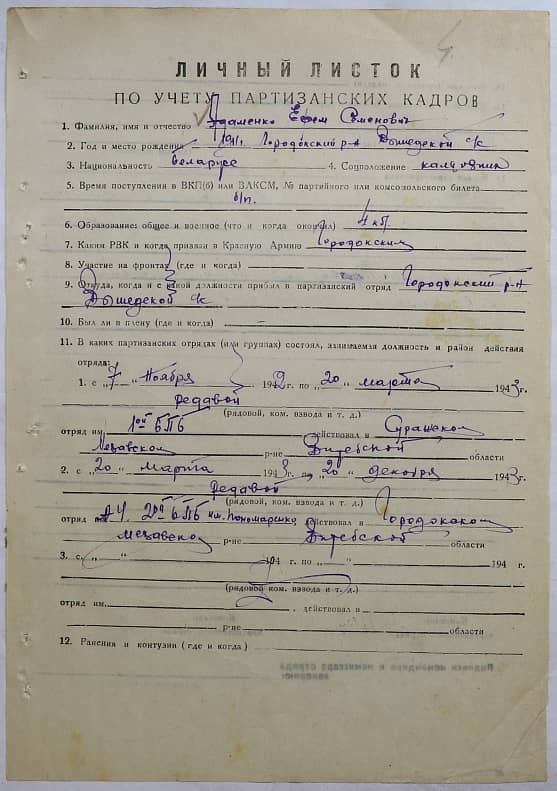 4.
ЛИЧНЫЙ ЛИСТОК
ПО УЧЕТУ ПАРТИЗАНСКИХ КАДРОВ
1. Фамилия, имя и отчество Ефем Семенович
2. Год и место рождения 1911, Городокский р-н Вышедской с/с
3. Национальность беларусс 4. Соцположение колхозник
5. Время поступления в ВКП(б) или ВЛКСМ, № партийного или комсомольского билета
б/п.
6. Образование: общее и военное (что и когда окончил) 4 кл.
7. Каким РВК и когда призван в Красную Армию Городокским
8. Участие на фронтах (где и когда)
9. Откуда, когда и с какой должности прибыл в партизанский отряд Городокский р-н
Вышедской с/с
10. Был ли в плену (где и когда)
11. В каких партизанских отрядах (или группах) состоял, занимаемая должность и район действия
отряда:
1. с „7“ Ноября 1942 г. по „20“ марта 1943 г.
Редавой
(рядовой, ком. взвода и т. д.)
отряд им. 1ой БПБ действовал в Суражском
Мехавском р-не Витебской области
2. с „20“ марта 1943 г. по „20“ декабря 1943 г.
Редавой
(рядовой, ком. взвода и т. д.)
отряд 2ой БПБ им. Пономаренко действовал в Городокском
Мехавском р-не Витебской области
3. с „ “ 194 г. по „ “ 194 г.
(рядовой, ком. взвода и т. д.)
отряд им. , действовал в
р-не области
12. Ранения и контузии (где и когда)